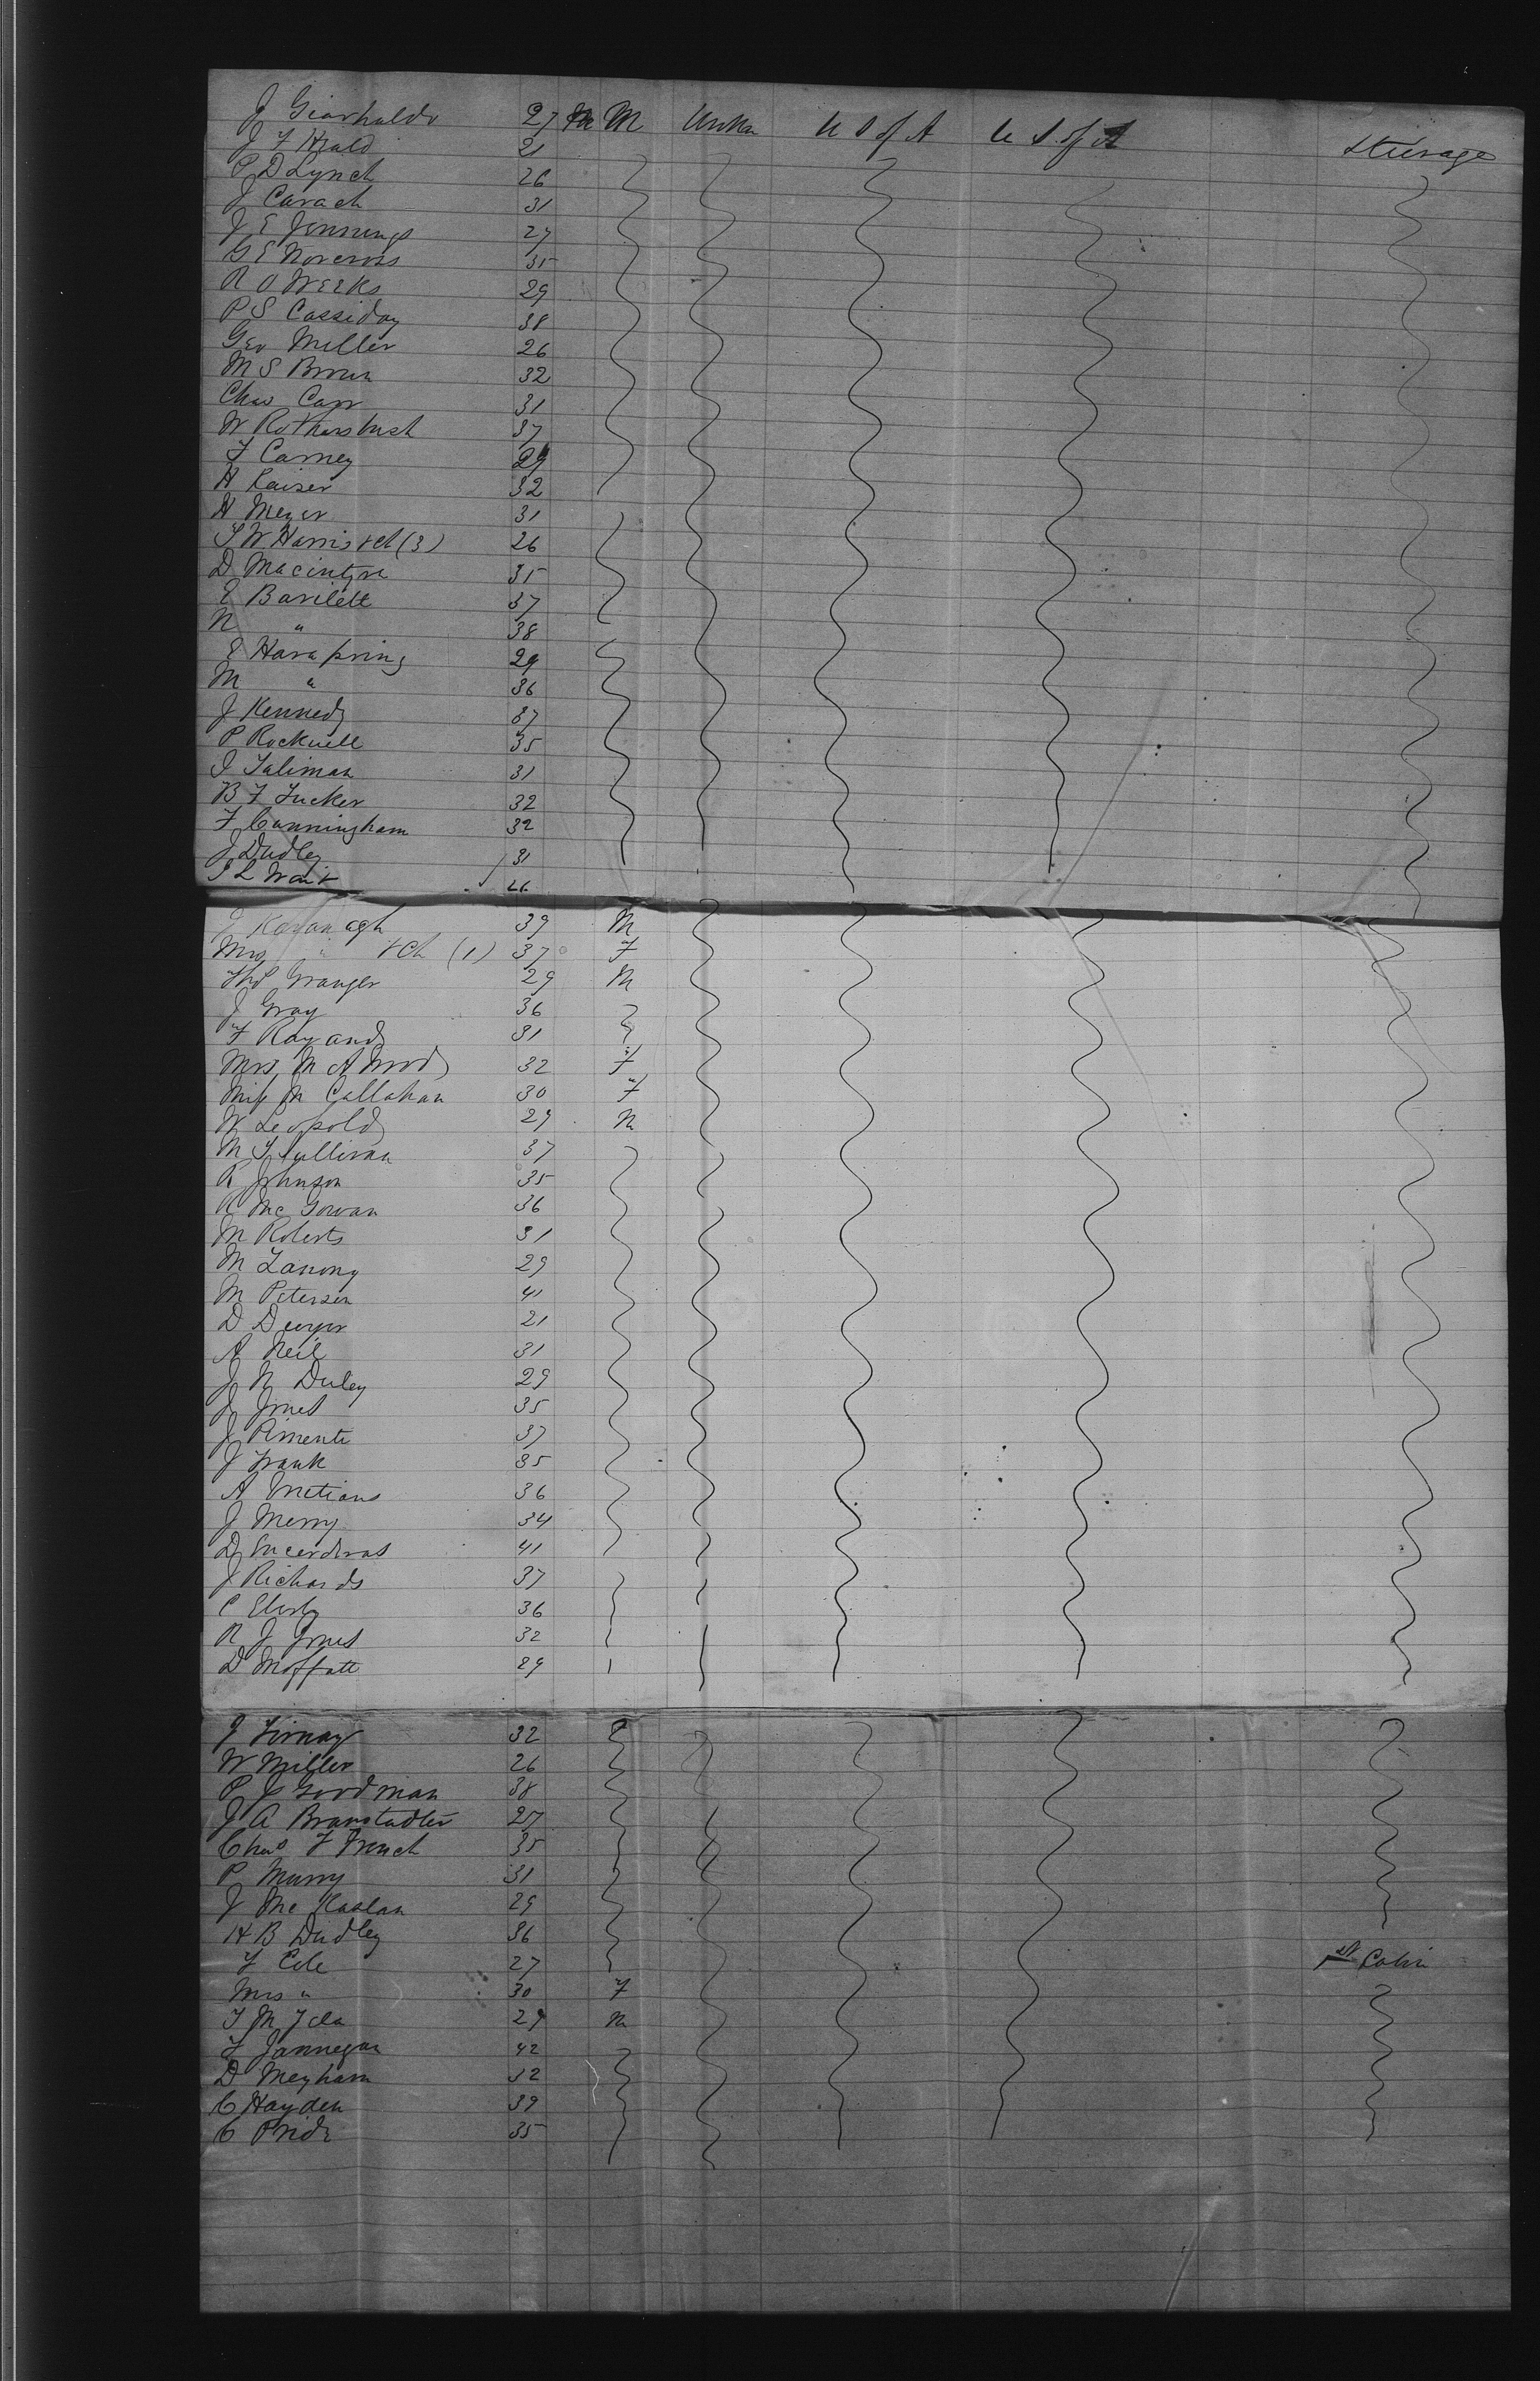 J Giarhaldo 27 M Unkn U S of A U S. of A Steerage
J F Heald 21
P D Lynch 26
J Cavach 31
J E Jennings 27
G E Norcross 35
R O Weeks 29
P S Cassiday 38
Geo Miller 26
M S Brown 32
Chas Carr 31
W Rothersbush 37
F Carney 29
H Kaiser 32
H Meyer 31
S W Harris & Ch (3) 26
D Macintyre 35
E Bartlett 37
N " 38
E Harapring 29
M " 36
J Kennedy 37
P Rockwell 35
J Taliman 31
B F Tucker 32
F Cunningham 32
J Dudley 31
J L Wait 26
J Kavanagh 39 M
Mrs " & Ch (1) 37 F
Thos Granger 29 M
J Gray 36
F Rayand 31
Mrs M A Wood 32 F
Miss M Callahan 30 F
W Leopold 29 M
M J Sullivan 37
R Johnson 35
R McGowan 36
M Roberts 31
M Lanony 29
M Petersen 41
D Dwyer 21
A Neil 31
J N Duley 29
J Jones 35
J Pimenti 37
J Frank 35
A Metians 36
J Merry 34
D 41
J Richards 37
C Elesby 36
R J Jones 32
D Moffatt 29
J Firnay 32
W Miller 26
P J Goodman 38
J A Branstadter 27
Chas F French 35
P Murry 31
J Mc Kaslan 29
H B Dudley 36
F Cole 27 1st Cabin
Mrs " 30 F
F M 29 M
F Jannegan 42
D Meyham 32
C Hayden 39
C Pride 35